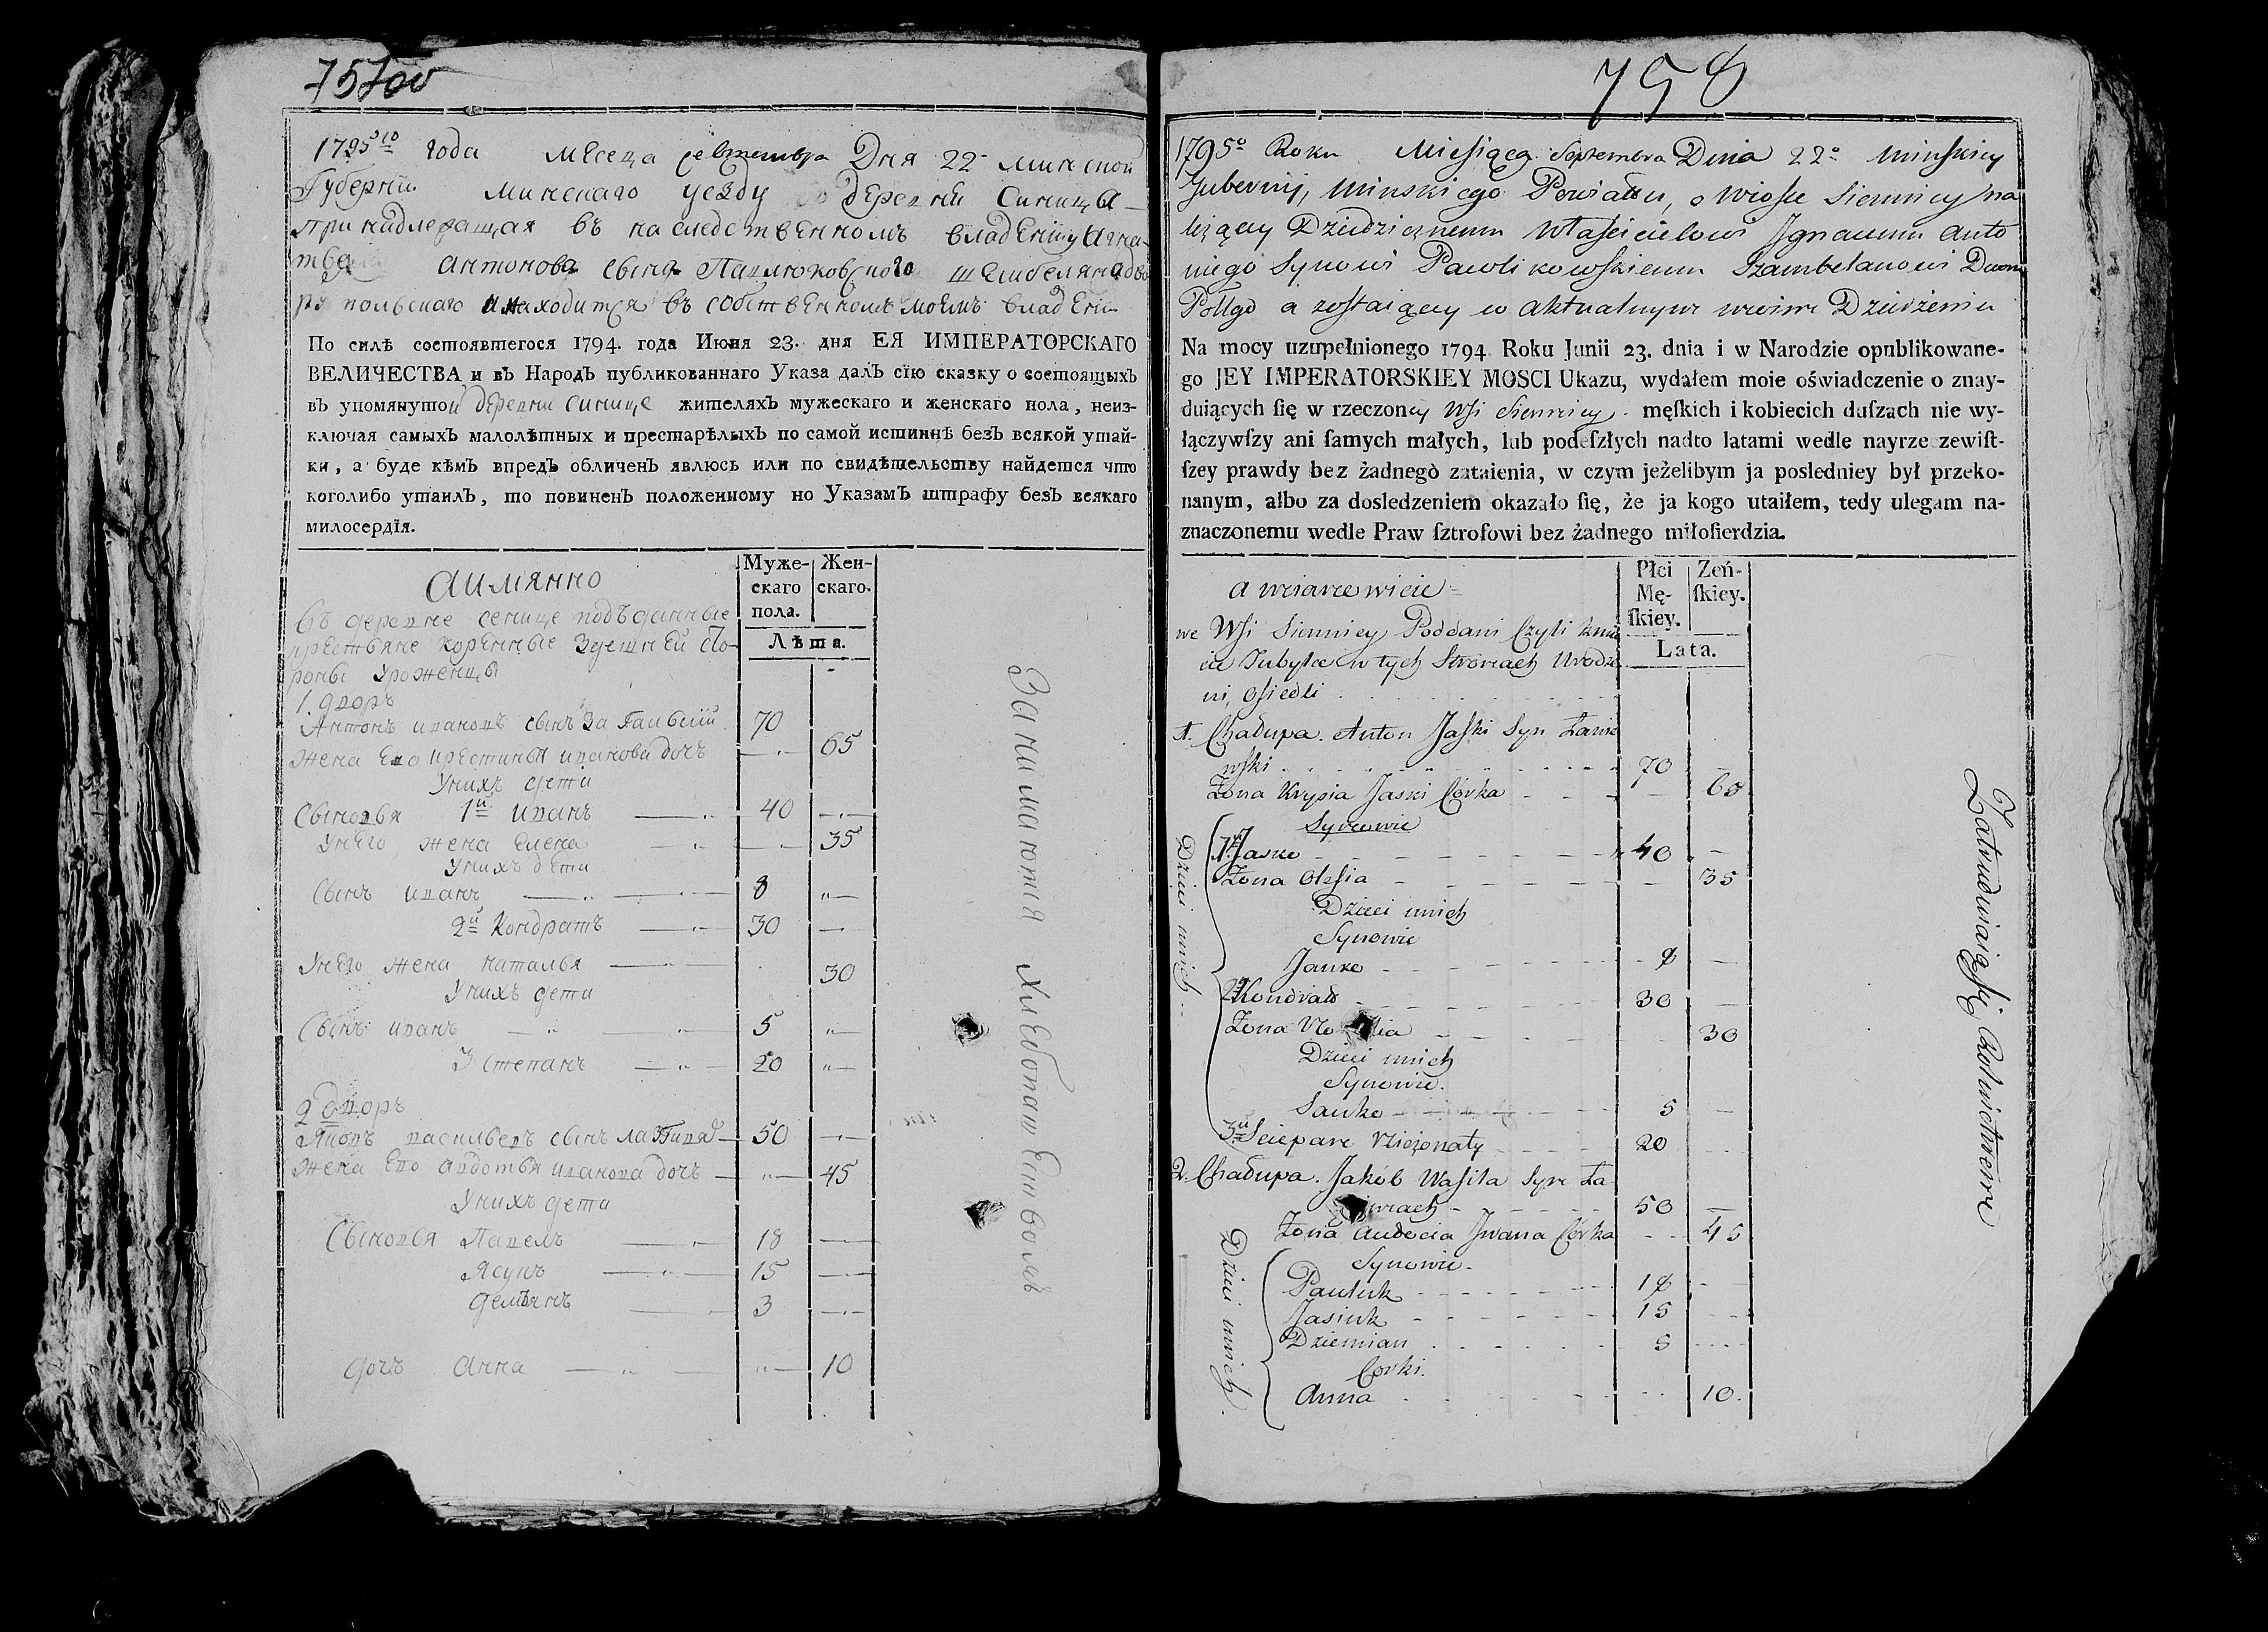 757об
1795го года месеца севтембра Дня 22 минской
Губернии минскаго уезду о деревни Синицы
принадлежащая въ наследственномъ владении у Игна-
антонова сына Павлюковского шамбеляна дво
ра польскаго и находится въ собственномъ моемъ владени
По силѣ состоявшегося 1794. года Июня 23. дня ЕЯ ИМПЕРАТОРСКАГО
ВЕЛИЧЕСТВА и въ Народъ публикованнаго Указа далъ сїю сказку о состоящыхъ
въ упомянутой деревни синице жителяхъ мужескаго и женскаго пола, неиз-
ключая самыхъ малолѣтныхъ и престарѣлыхъ по самой истиннѣ безъ всякой утай-
ки, а буде кѣмъ впредъ обличенъ явлюсь или по свидѣтельству найдется что
коголибо утаилъ, то повиненъ положенному по Указамъ штрафу безъ всякаго
милосердїя.
аимянно
Муже-
скаго
пола.
Жен-
скаго.
Лѣта.
въ деревне сенице подъданные
крестьяне коренные здешней сто-
роны уроженцы
1. дворъ
Антонъ ивановъ сынъ 70
жена ево крестинья иванова дочь 65
у нихъ дети
Сыновья 1й иванъ 40
у него жена елена 35
у нихъ дети
Сынъ иванъ 8
2й Кондратъ 30
у него жена наталья 30
у нихъ дети
Сынъ иванъ 5
3 степанъ 20
2 дворъ
Яковъ васильевъ сынъ 50
жена ево авдотья иванова дочь 45
у нихъ дети
Сыновья Павелъ 18
Ясукъ 15
демьянъ 3
дочь Анна 10
Занимаются хлебопашествомъ
758
1795o Roku Miesiąca Septembra Dnia 22o Minskiey
Gubernij, Minskiego Powiatu, o Wiosce Siennicy na
leżącey Dziedzicznemu Właścicielowi Jgnacemu Anto
niego Synowi Pawlikowskiemu Szambelanowi Dworu
Pollgo a zostaiącey w aktualnym moim Dzierżeniu
Na mocy uzupełnionego 1794 Roku Junii 23. dnia i w Narodzie opublikowane-
go JEY IMPERATORSKIEY MOSCI Ukazu, wydałem moie oświadczenie o znay-
duiących ſię w rzeczoney Wsi Sienncy męſkich i kobiecich duſzach nie wy-
łączywſzy ani ſamych małych, lub podeſzłych nadto latami wedle nayrzezewiſt-
ſzey prawdy bez żadnego zataienia, w czym jeżelibym ja posledniey był przeko-
nanym, albo za dosledzeniem okazało ſię, że ja kogo utaiłem, tedy ulegam na-
znaczonemu wedle Praw ſztrofowi bez żadnego miłoſierdzia.
a mianowicie
Płci
Mę-
ſkiey.
Zeń-
ſkiey.
Lata.
we Wsi Sienncy Poddani Czyli kmie
cie Tubylce w tych Stronach Urodze
ni, osiedli
1. Chałupa. Anton Jaſki Syn Łanie
wſki 70
Żona Krysia Jaski Córka 65
Dzieci unich
Synowie
1 Jasko 40
Żona Olesia 35
Dzieci unich
Synowie
Janko 8
2 Kondrat 30
Żona 30
Dzieci unich
Synowie.
Janko 5
3 Sciepan Nieżonaty 20
2. Chałupa. Jakób Wasila Syn Ła
50
Żona Audocia Jwana Córka 45
Dzieci unich
Synowie
Pauluk 18
Jasiuk 15
Dziemian 5
Corki.
Anna 10
Zatrudniaią się Rolnictwem